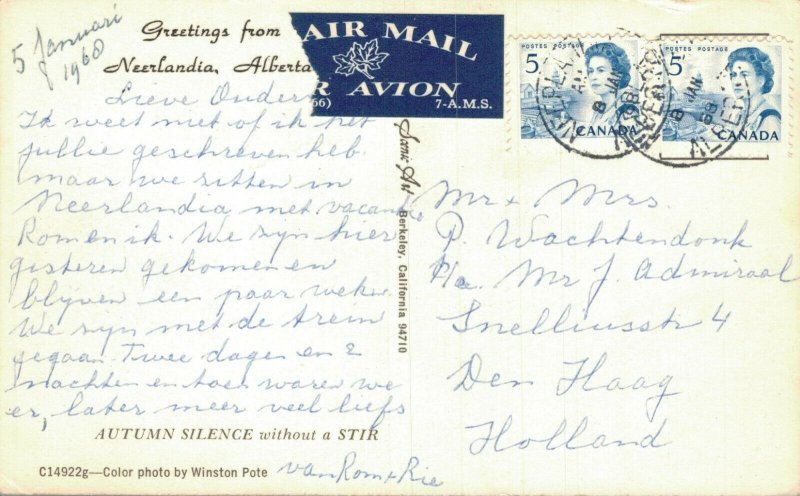 5 Januari
1968
Greetings from
Neerlandia, Alberta
AIR MAIL
R AVION
66)
7-A.M.S.
POSTES POSTAGE
5
CANADA
POSTES POSTAGE
5
CANADA
8 JAN
68
ALBERTA
Lieve Ouders
Ik weet niet of ik het
jullie geschreven heb.
maar we zitten in
Neerlandia met vacantie
Rom en ik. We zyn hier
gisteren gekomen en
blyven een paar weken.
We zyn met de trein
gegaan. Twee dagen en 2
nachten en toen waren we
er, later meer veel liefs
van Rom & Rie
AUTUMN SILENCE without a STIR
C14922g—Color photo by Winston Pote
Scenic Art
Berkeley, California 94710
Mr & Mrs.
P. Wachtendonk
p/a. Mr J. Admiraal
Snelliusstr 4
Den Haag
Holland